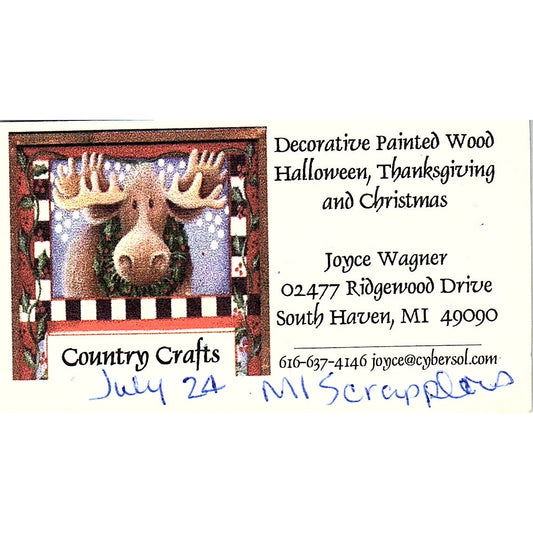 Decorative Painted Wood
Halloween, Thanksgiving
and Christmas
Joyce Wagner
02477 Ridgewood Drive
South Haven, MI 49090
616-637-4146 joyce@cybersol.com
Country Crafts
July 24 MI Scrapplers